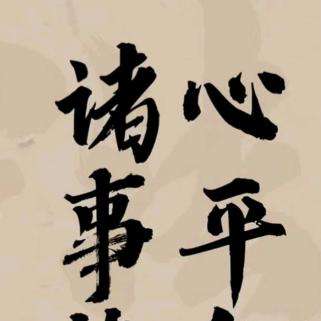 心平
诸事